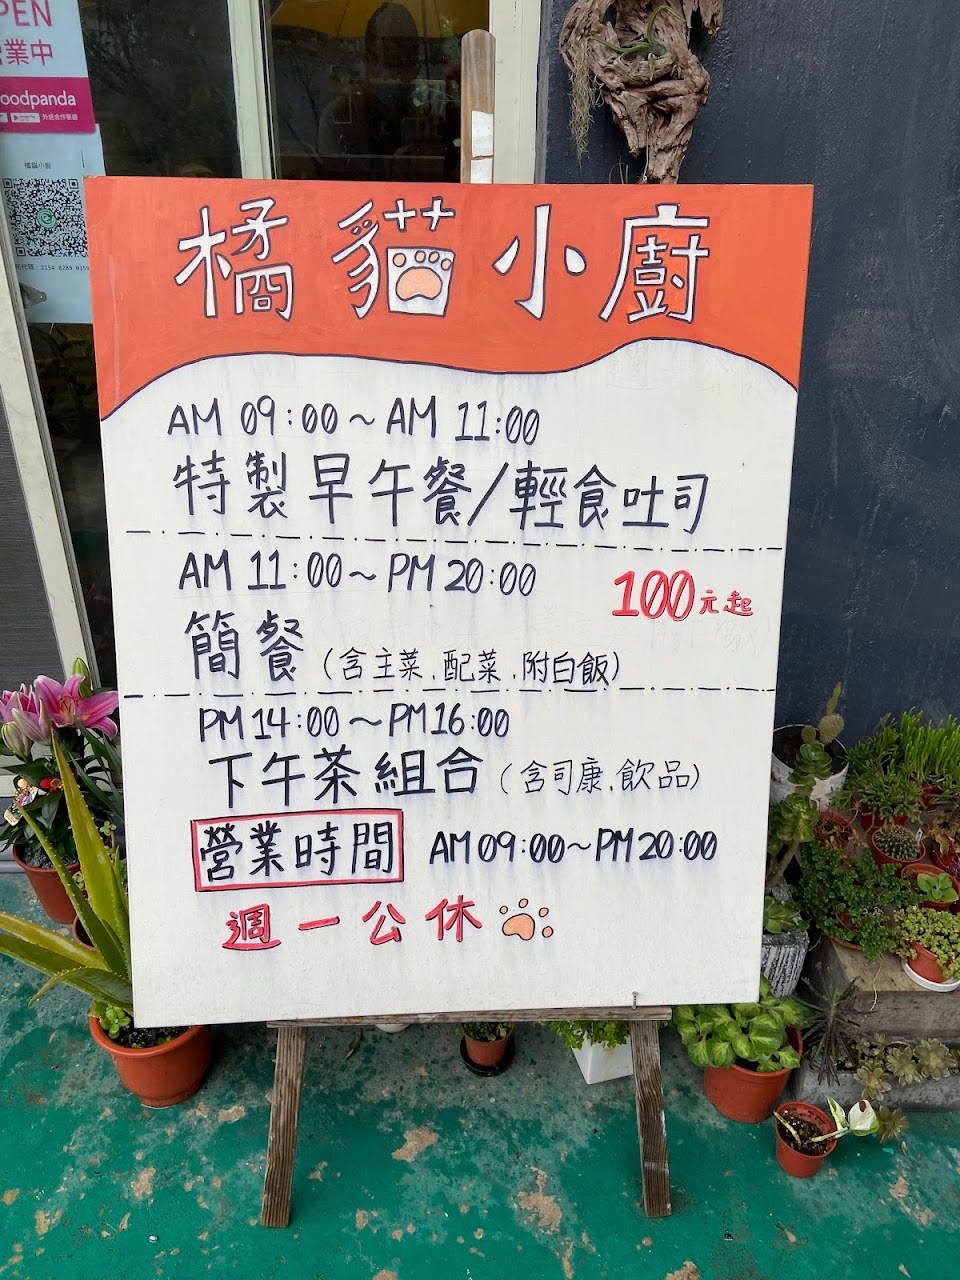 OPEN
營業中
foodpanda
外送合作餐廳
橘貓小廚
橘貓小廚
AM 09:00~AM 11:00
特製早午餐/輕食吐司
AM 11:00~PM 20:00
100元起
簡餐(含主菜.配菜.附白飯)
PM 14:00~PM 16:00
下午茶組合(含司康.飲品)
營業時間 AM 09:00~PM 20:00
週一公休